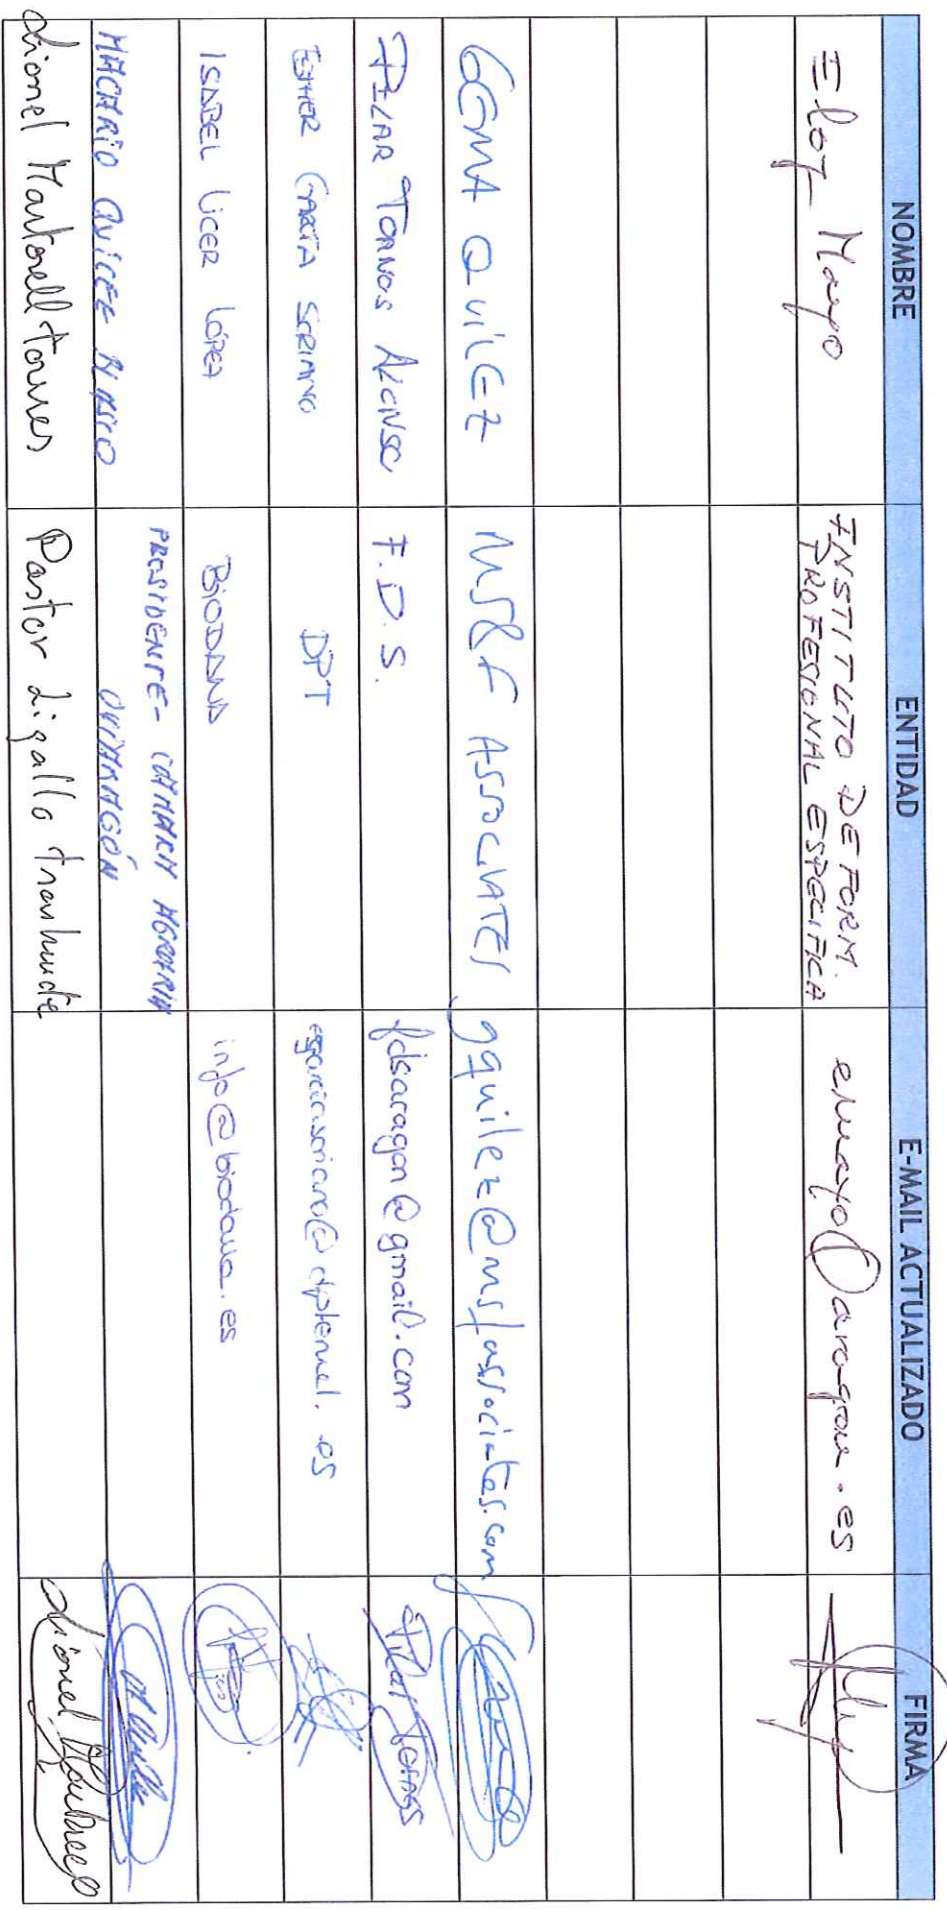 NOMBRE ENTIDAD E-MAIL ACTUALIZADO FIRMA
Eloy Mayo INSTITUTO DE FORM. PROFESIONAL ESPECIFICA emayo@aragon.es
GEMA QUILEZ MS&F ASSOCIATES gquilez@msfassociates.com
PILAR TORNOS ALONSO F.D.S. fdsaragon@gmail.com Pilar Tornos
ESTHER GARCIA SORIANO DPT egarciasoriano@dpteruel.es
ISABEL LICER LÓPEZ BIODANA info@biodana.es
MACARIO QUILEZ BLASCO PRESIDENTE - CAMARA AGRARIA
Lionel Martorell Torres Pastor Ligallo Lionel Martorell